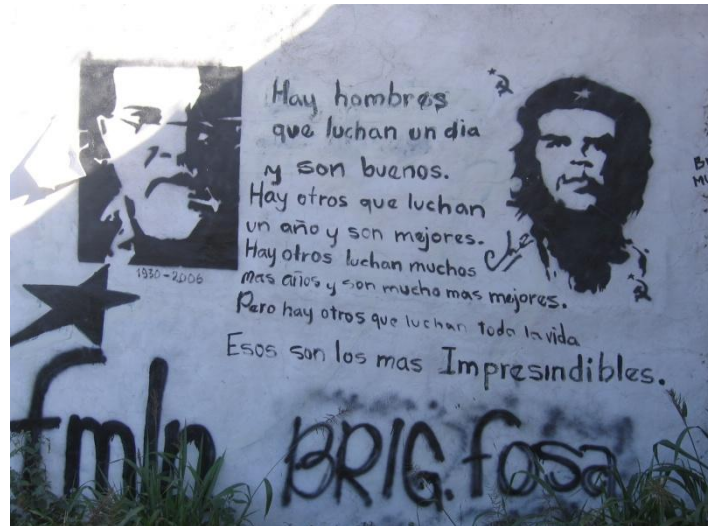 Hay hombres
que luchan un dia
y son buenos.
Hay otros que luchan
un año y son mejores.
Hay otros luchan muchos
mas años y son mucho mas mejores.
Pero hay otros que luchan toda la vida
Esos son los mas Impresindibles.
Che
1930-2006
fmln
BRIG. fosa